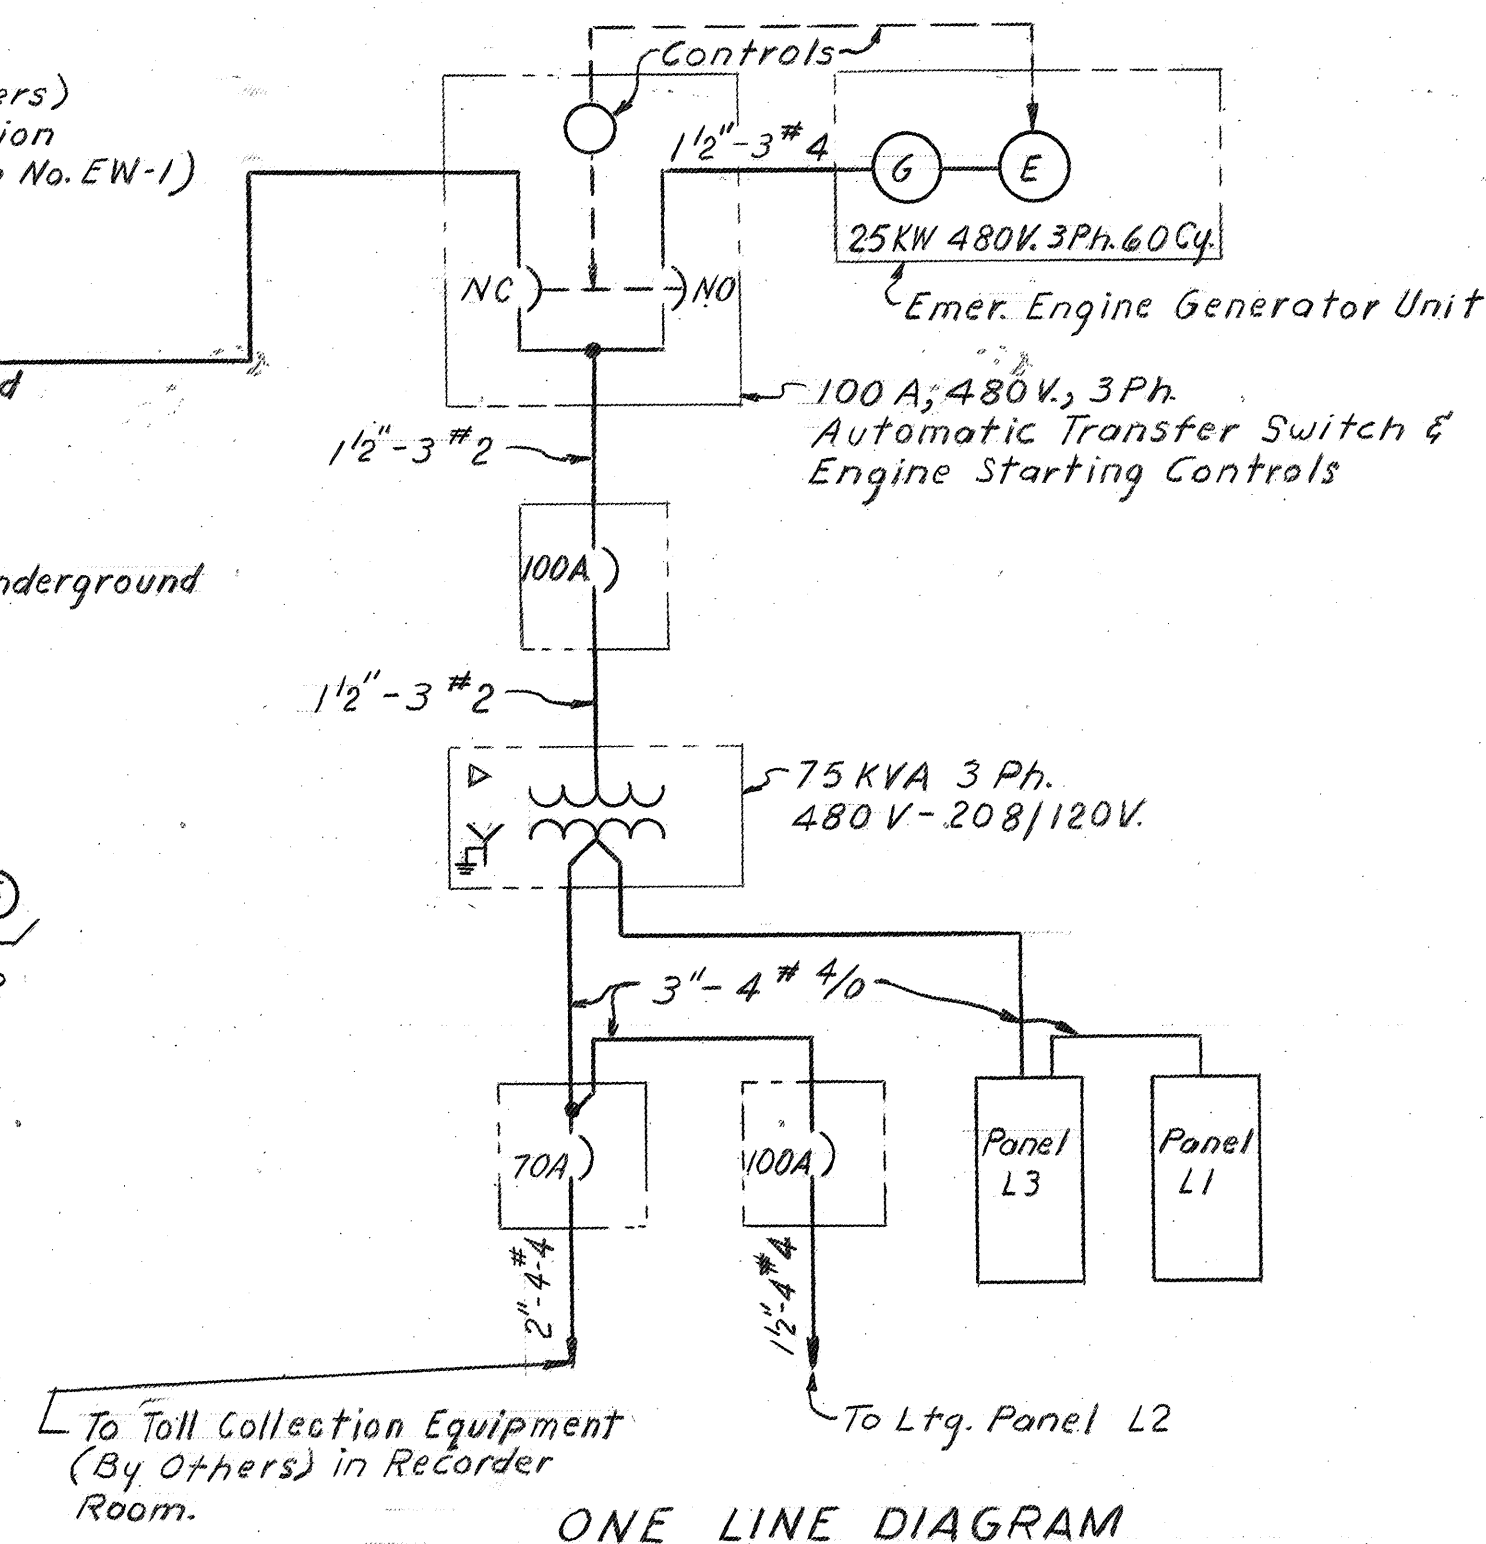 Controls
ers)
ion
No. EW-1)
1½"-3#4
G
E
25KW 480V. 3Ph. 60Cy.
NC
NO
Emer. Engine Generator Unit
d
100 A, 480V., 3Ph.
Automatic Transfer Switch &
Engine Starting Controls
1½"-3#2
100A
nderground
1½"-3#2
75KVA 3 Ph.
480V-208/120V.
3"-4# 4/0
70A
100A
Panel
L3
Panel
L1
2"-4-#4
1½"-4#4
To Toll Collection Equipment
(By Others) in Recorder
Room.
To Ltg. Panel L2
ONE LINE DIAGRAM